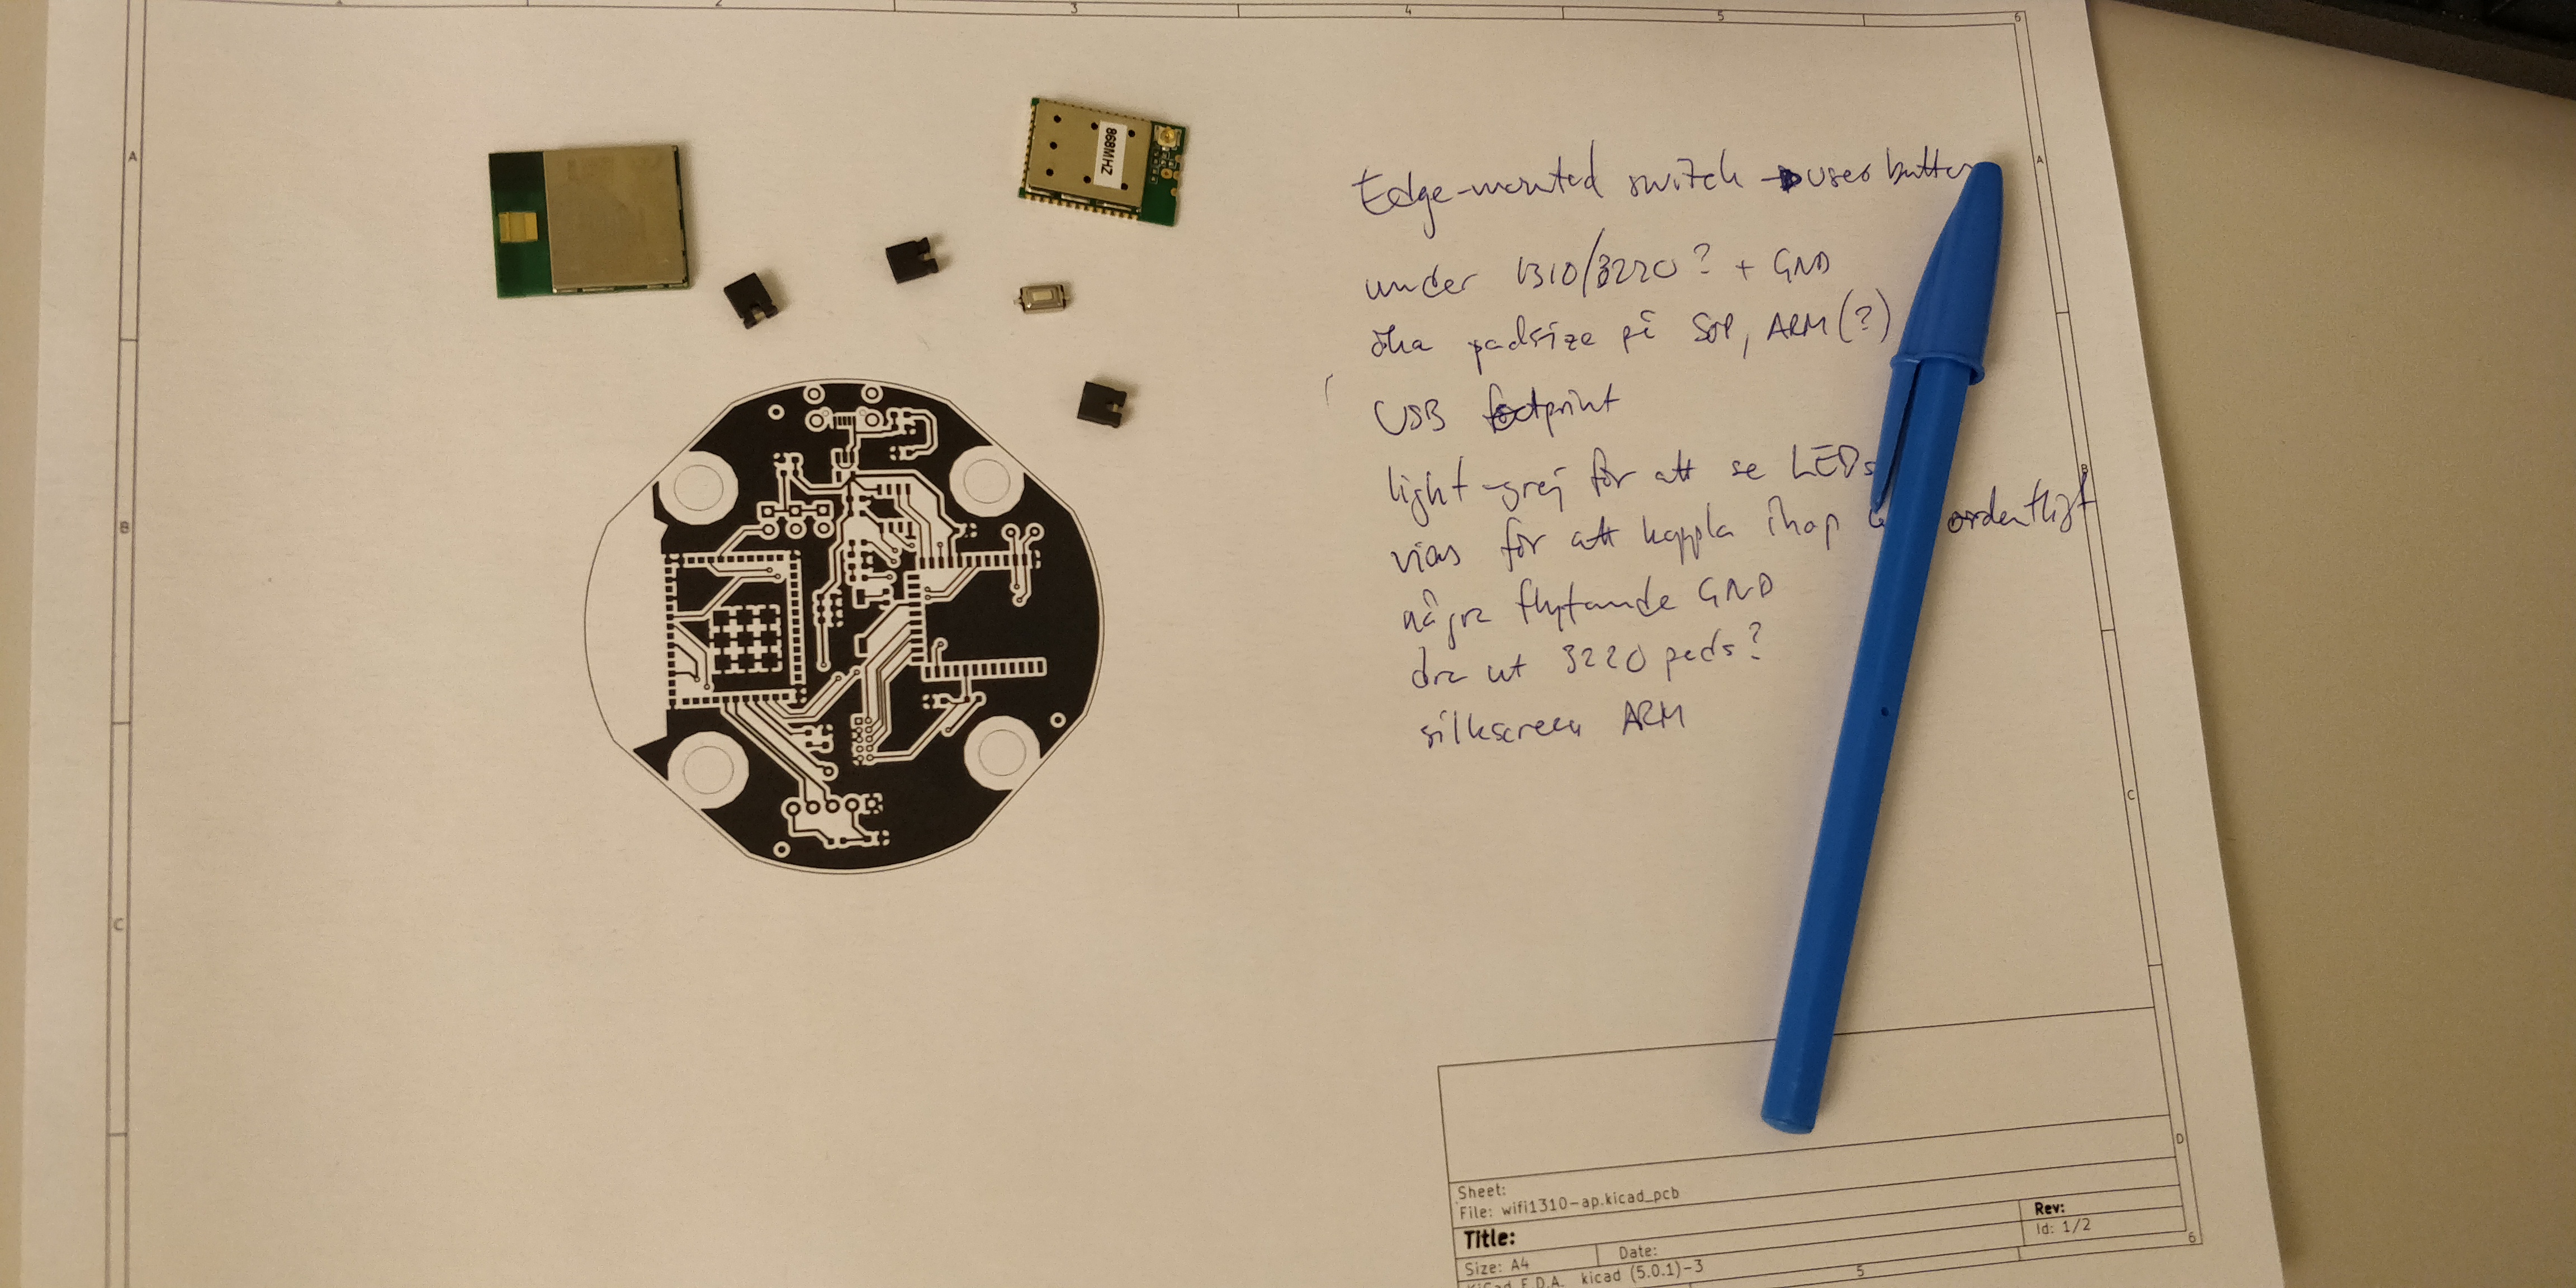 1 2 3 4 5 6
A
A
868MHZ
Edge-mounted switch → user button
under 1310/3220? + GND
öka padsize på SOP, ARM(?)
USB footprint
light-grej för att se LEDs
B
B
vias för att koppla ihop ordentligt
några flytande GND
dra ut 3220 pads?
silkscreen ARM
C
C
D
Sheet:
File: wifi1310-ap.kicad_pcb
Title:
Rev:
Size: A4 Date:
Id: 1/2
KiCad E.D.A. kicad (5.0.1)-3
5 6